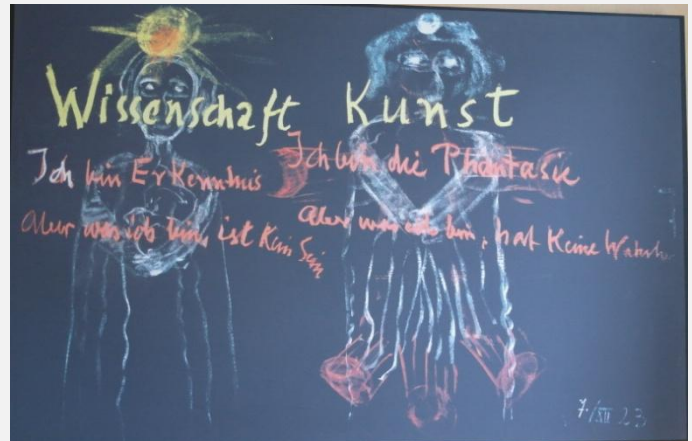 Wissenschaft
Kunst
Ich bin Erkenntnis
Aber was ich bin, ist kein Sein
Ich bin die Phantasie
Aber was ich bin, hat keine
7./XII 23